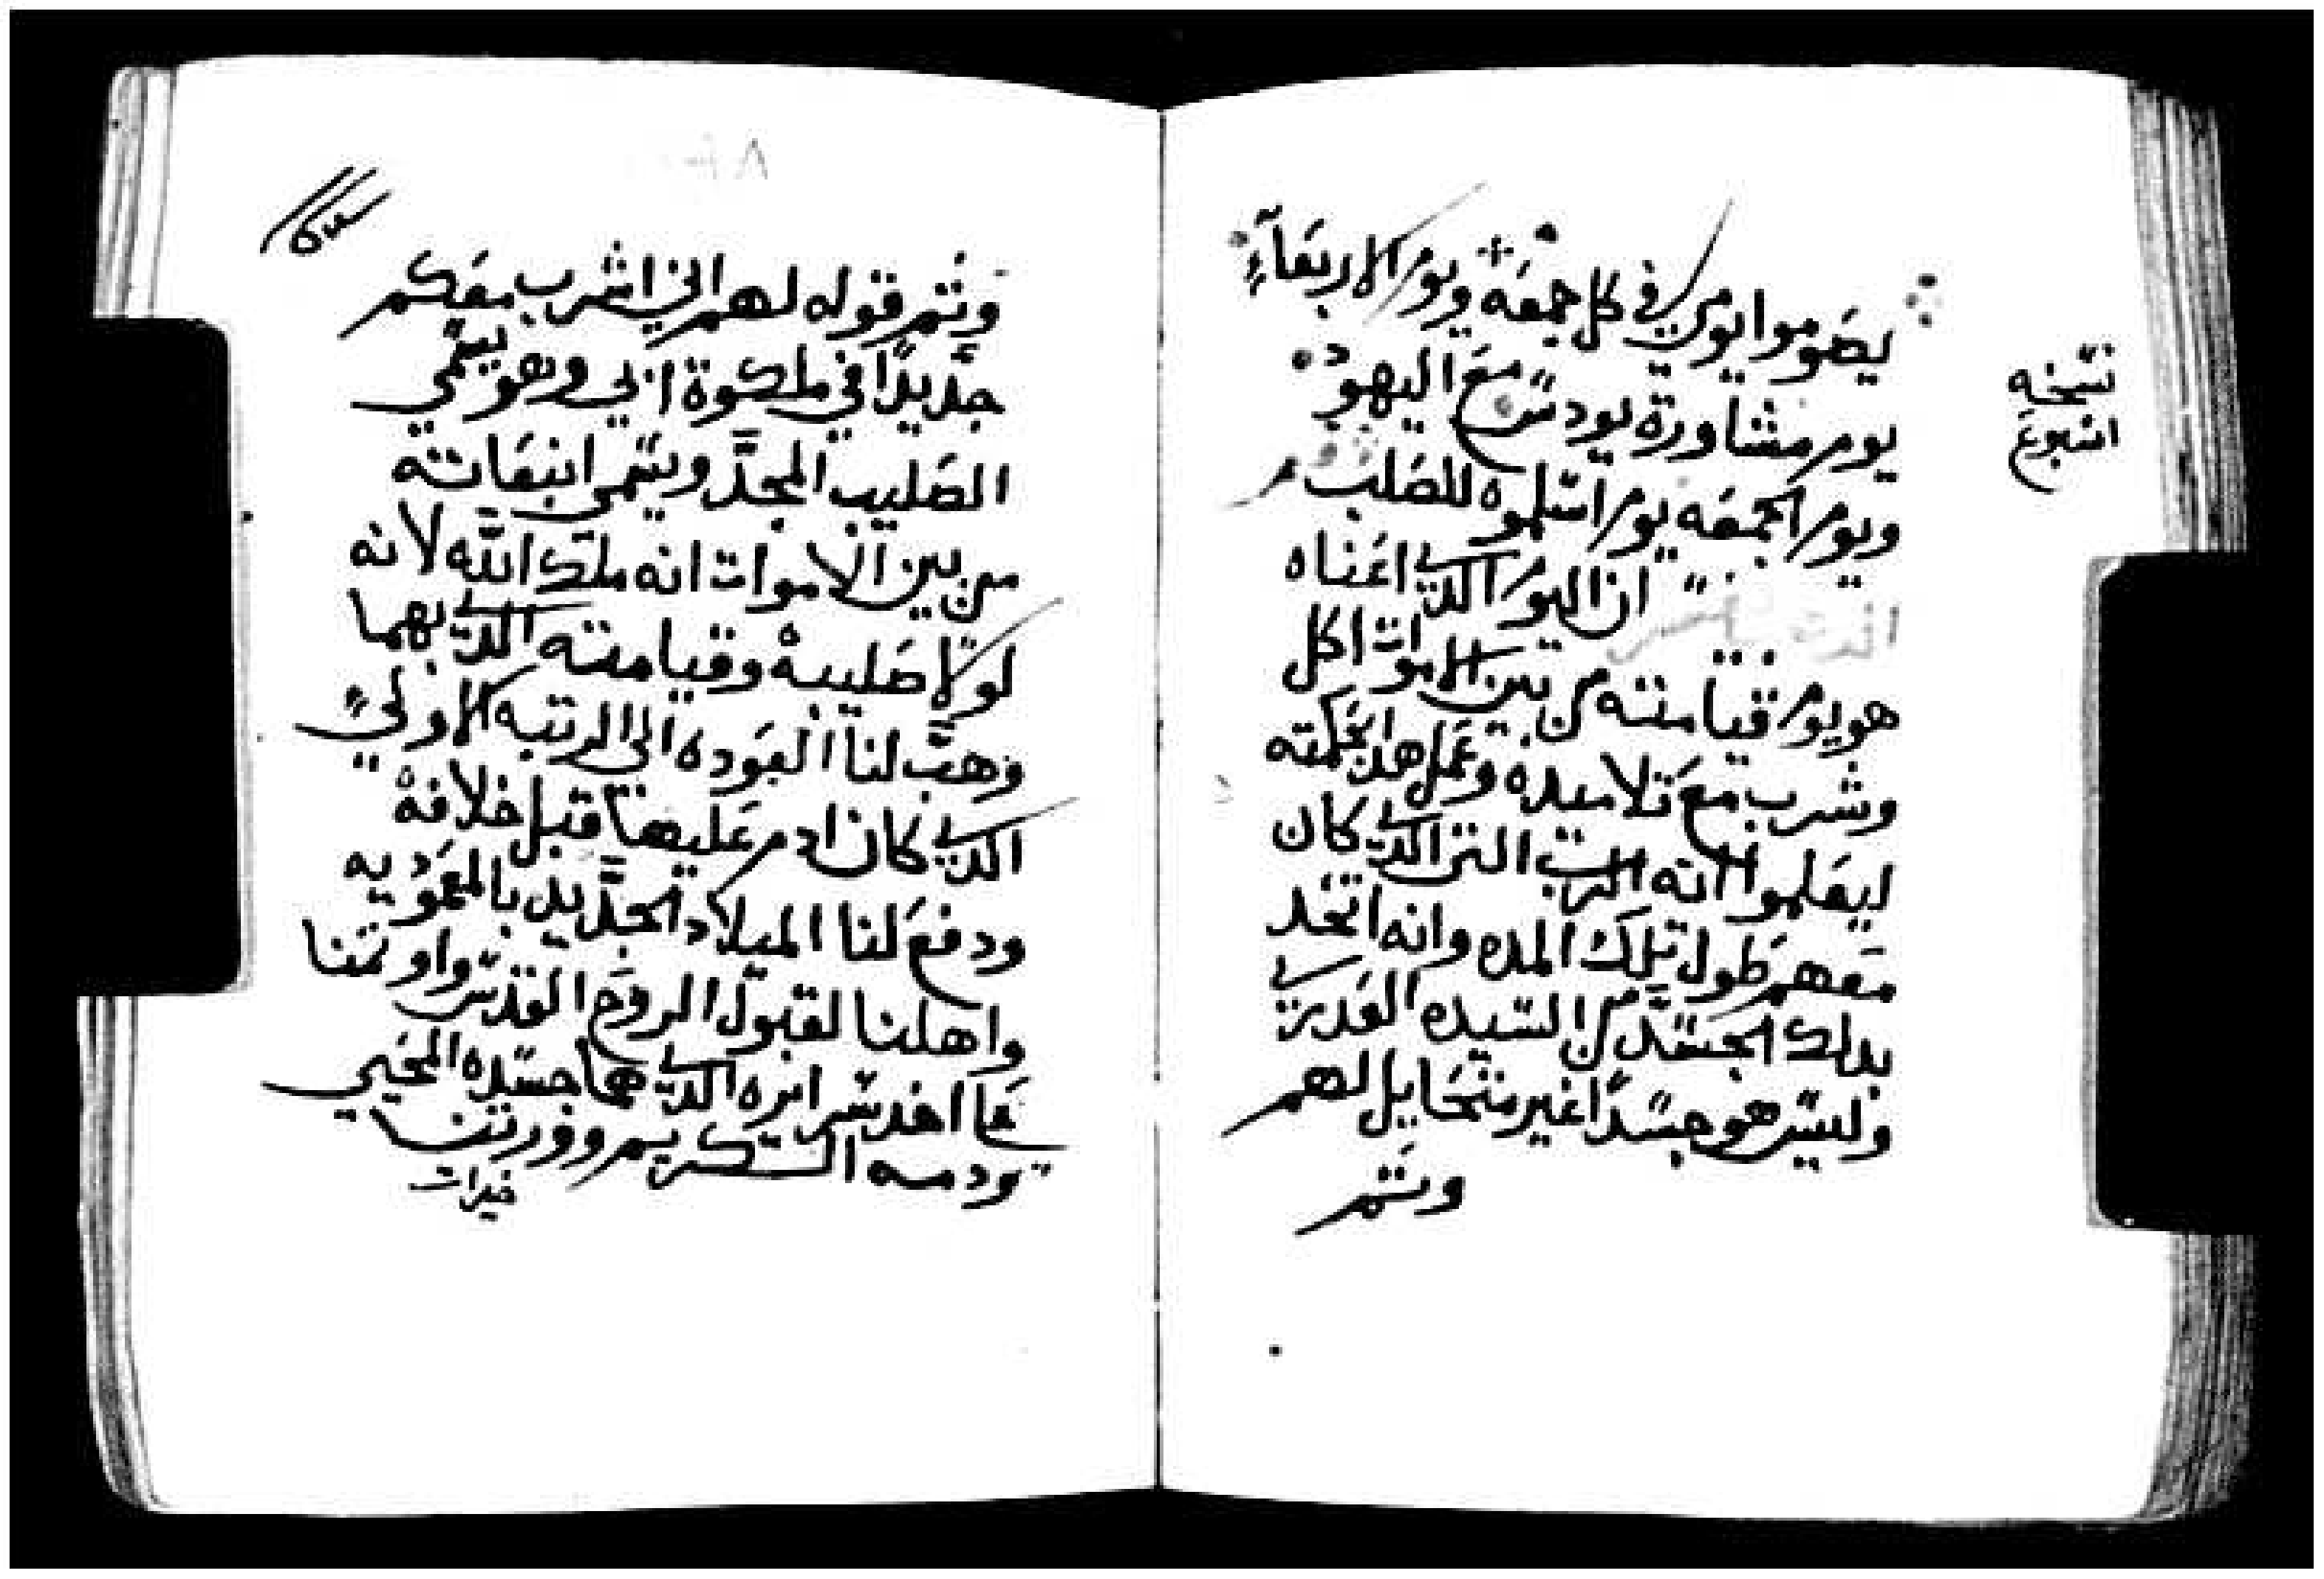 يصوموا يومين في كل جمعه ويوم الاربعآء
يوم مشاورة يودس مع اليهود
ويوم الجمعه يوم اسلموه للصلب
ان اليوم الدي اعناه
هو يوم قيامته من بين الاموات اكل
وشرب مع تلاميده وعمل هدا بحكمته
ليعلموا انه الرب الدي كان
معهم طول تلك المده وانه اتخد
بدلك الجسد من السيده العدرى
وليس هو جسدًا غير متحايل لهم
وتتم
نسخه
اسبوع
وتتم قوله لهم اني اشرب معكم
جديدًا في ملكوة ابي وهو يتمي
الصليب المجد ويتمى انبعاتته
من بين الاموات انه ملك الله لانه
لولا صليبه وقيامته الدي بهما
وهب لنا العوده الى الرتبه الاولى
الدي كان ادم عليها قبل خلافه
ودفع لنا الميلاد الجديد بالمعموديه
واهلنا لقبول الروح القدس واوتمنا
على اخد سرايره الدي هما جسده المحيي
ودمه الكريم وورتنا
خيرات